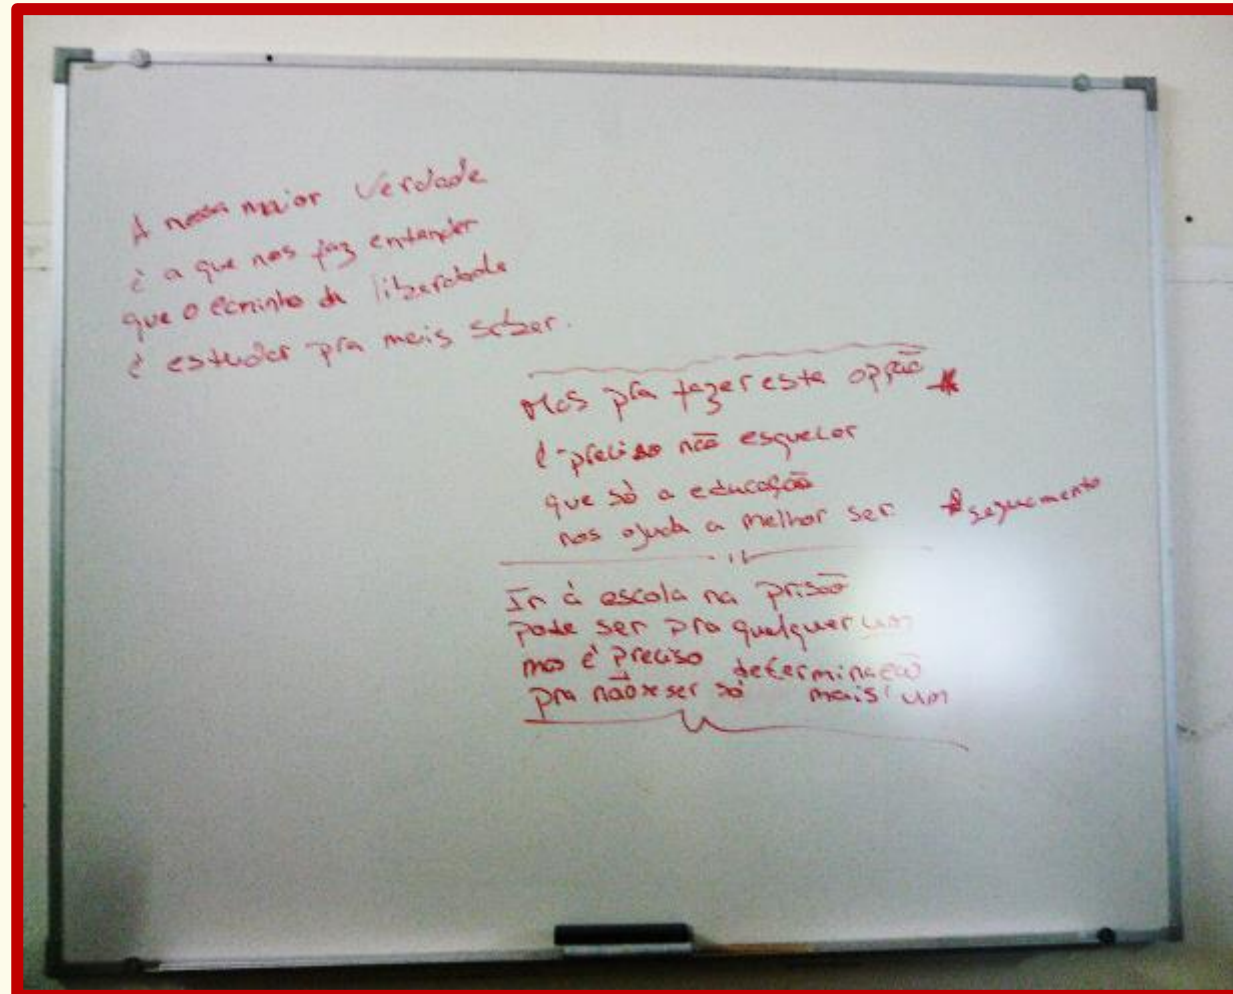 A nossa maior verdade
é a que nos faz entender
que o caminho da liberdade
é estudar pra mais saber.
Mas pra fazer esta opção *
é preciso não esquecer
que só a educação
nos ajuda a melhor ser
* seguemento
Ir à escola na prisão
pode ser pra qualquer um
mas é preciso determinação
pra não se ser só mais um